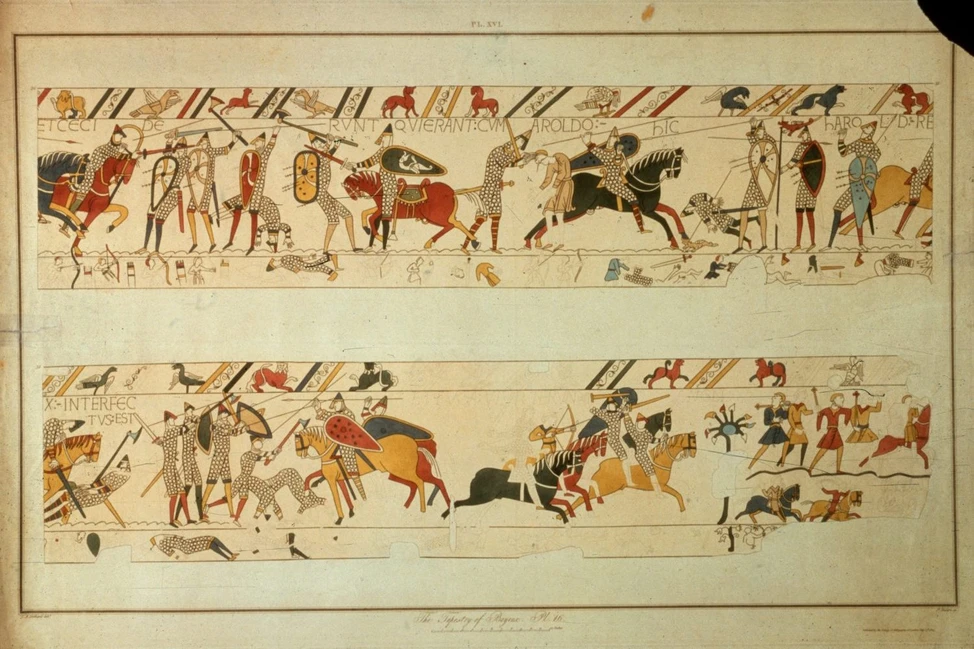 PL. XVI.
ET CECI DE RVNT QVIERANT: CVM AROLDO:- hIC hAROLD: RE
X:- INTERFEC
TVS: EST
The Tapestry of Bayeux. Pl. 16.